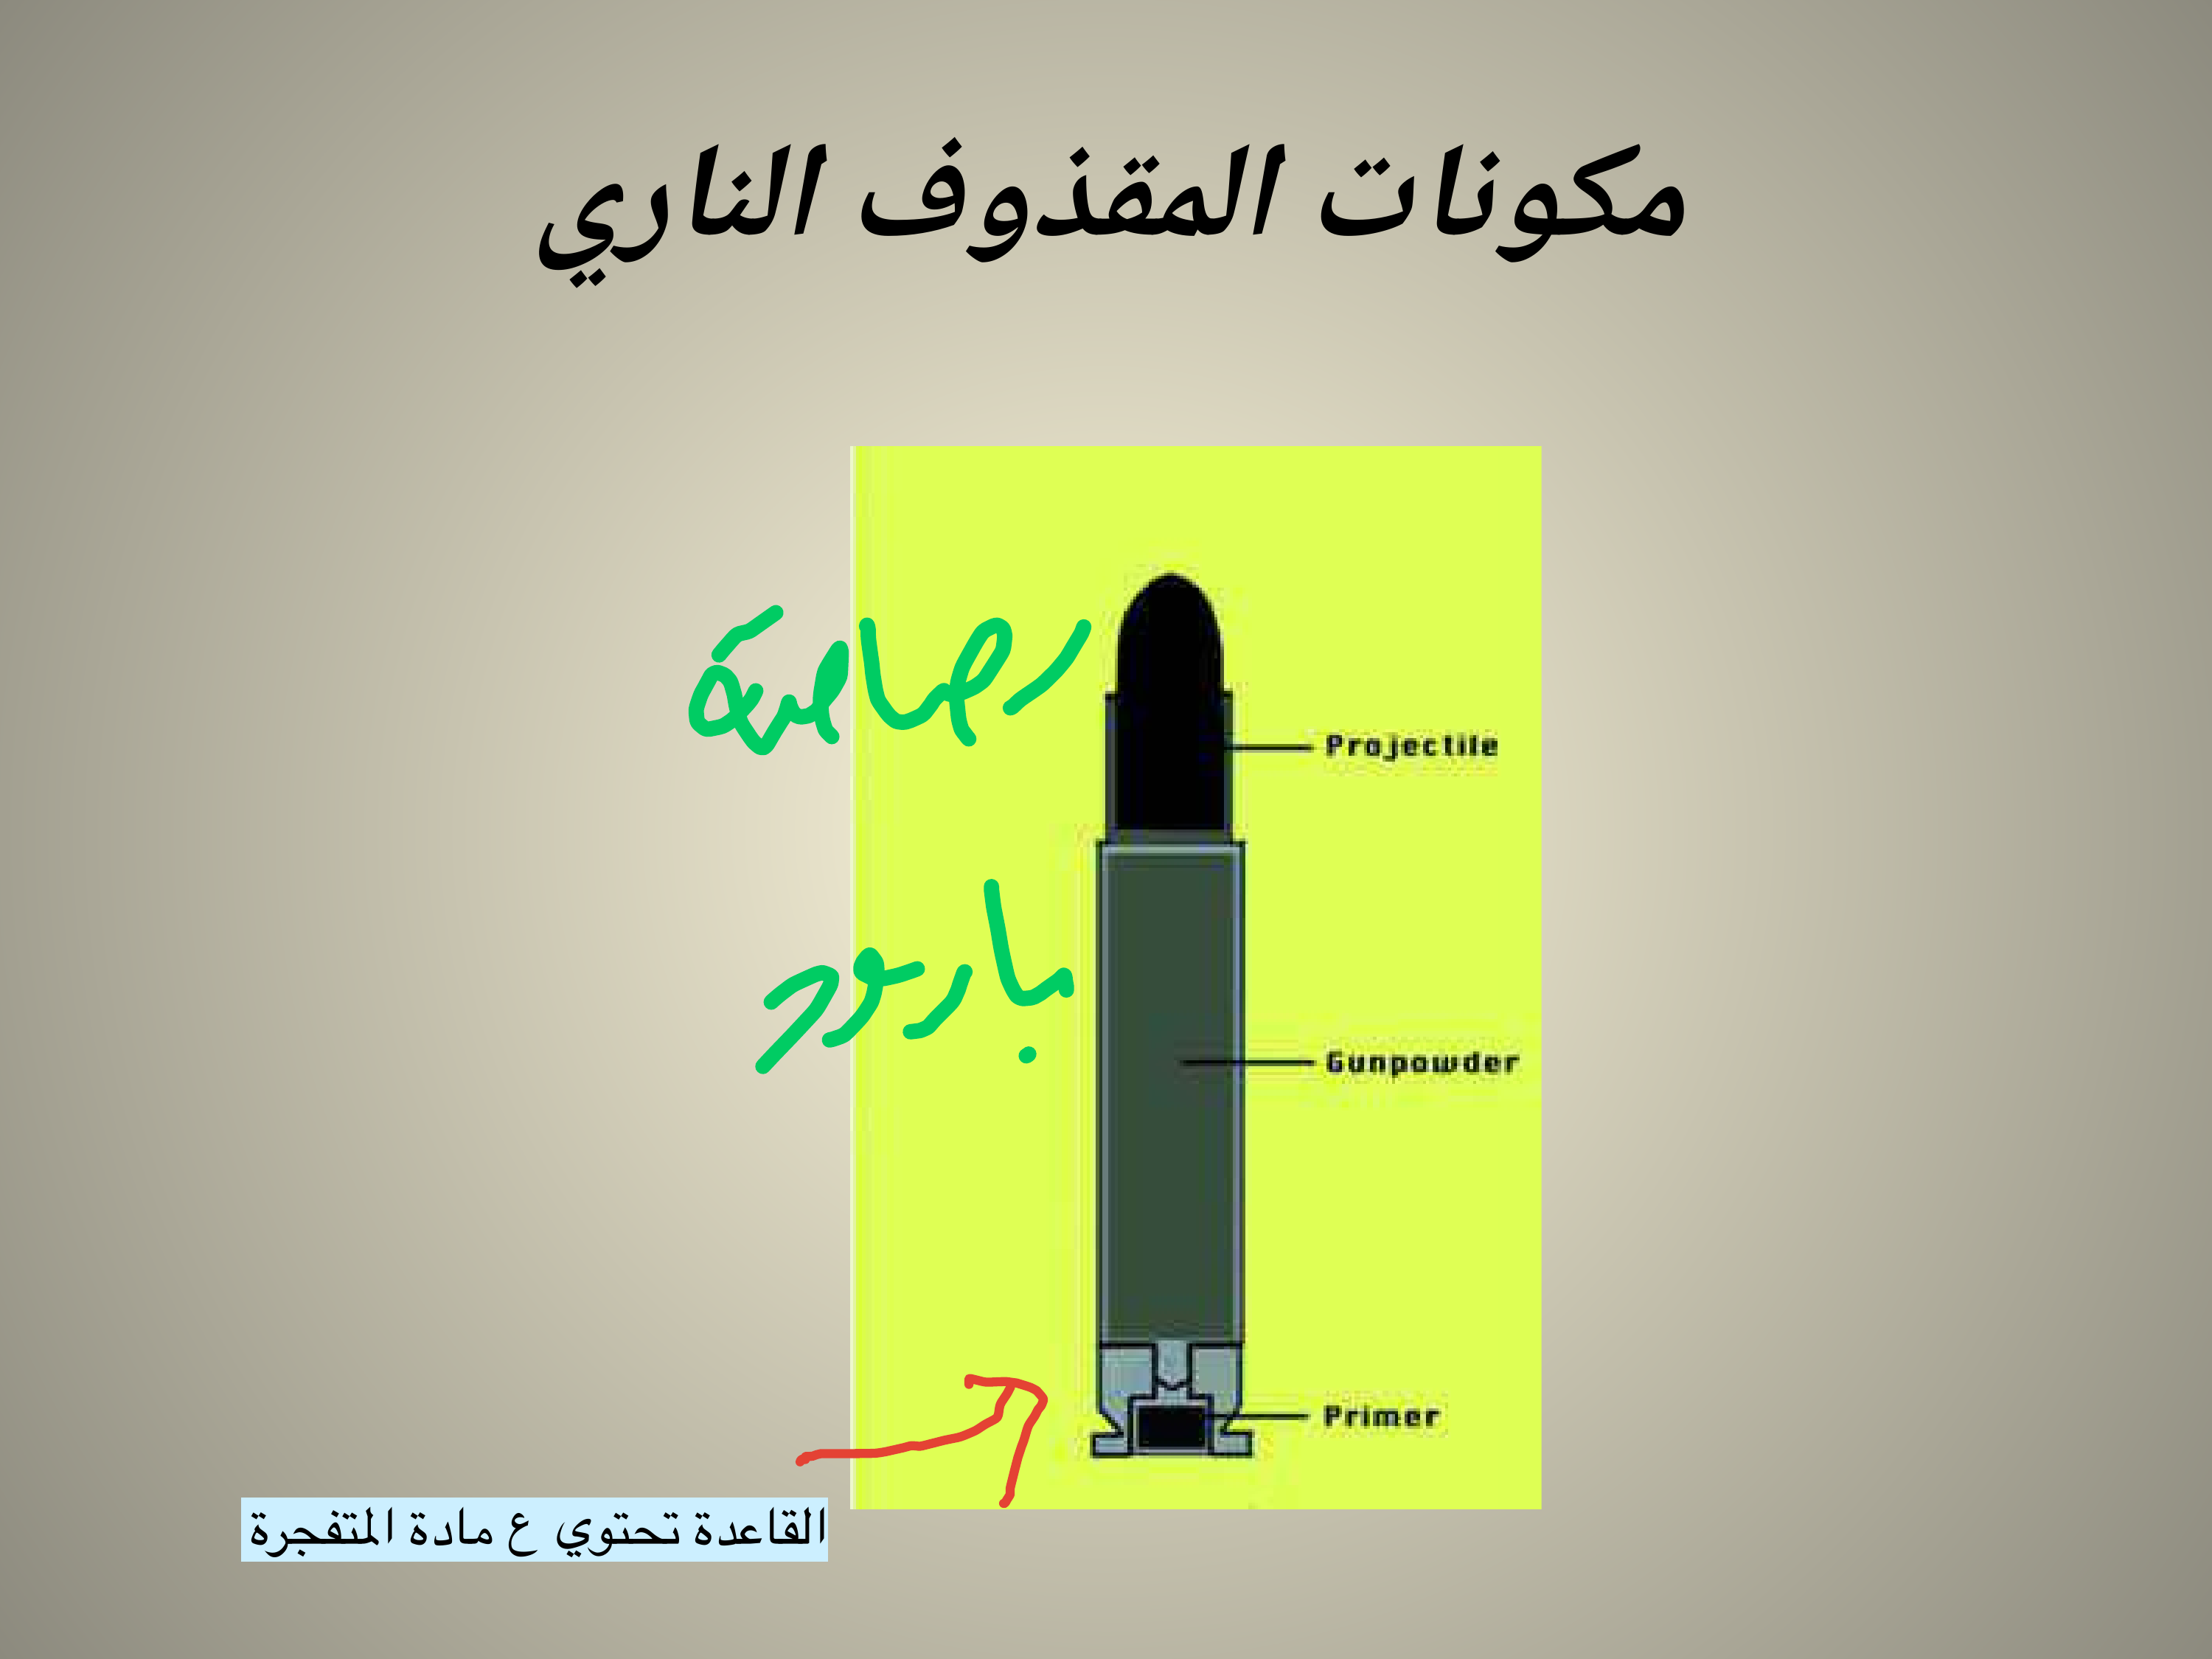 مكونات المقذوف الناري
رصاصة
Projectile
بارود
Gunpowder
Primer
القاعدة تحتوي ع مادة المتفجرة